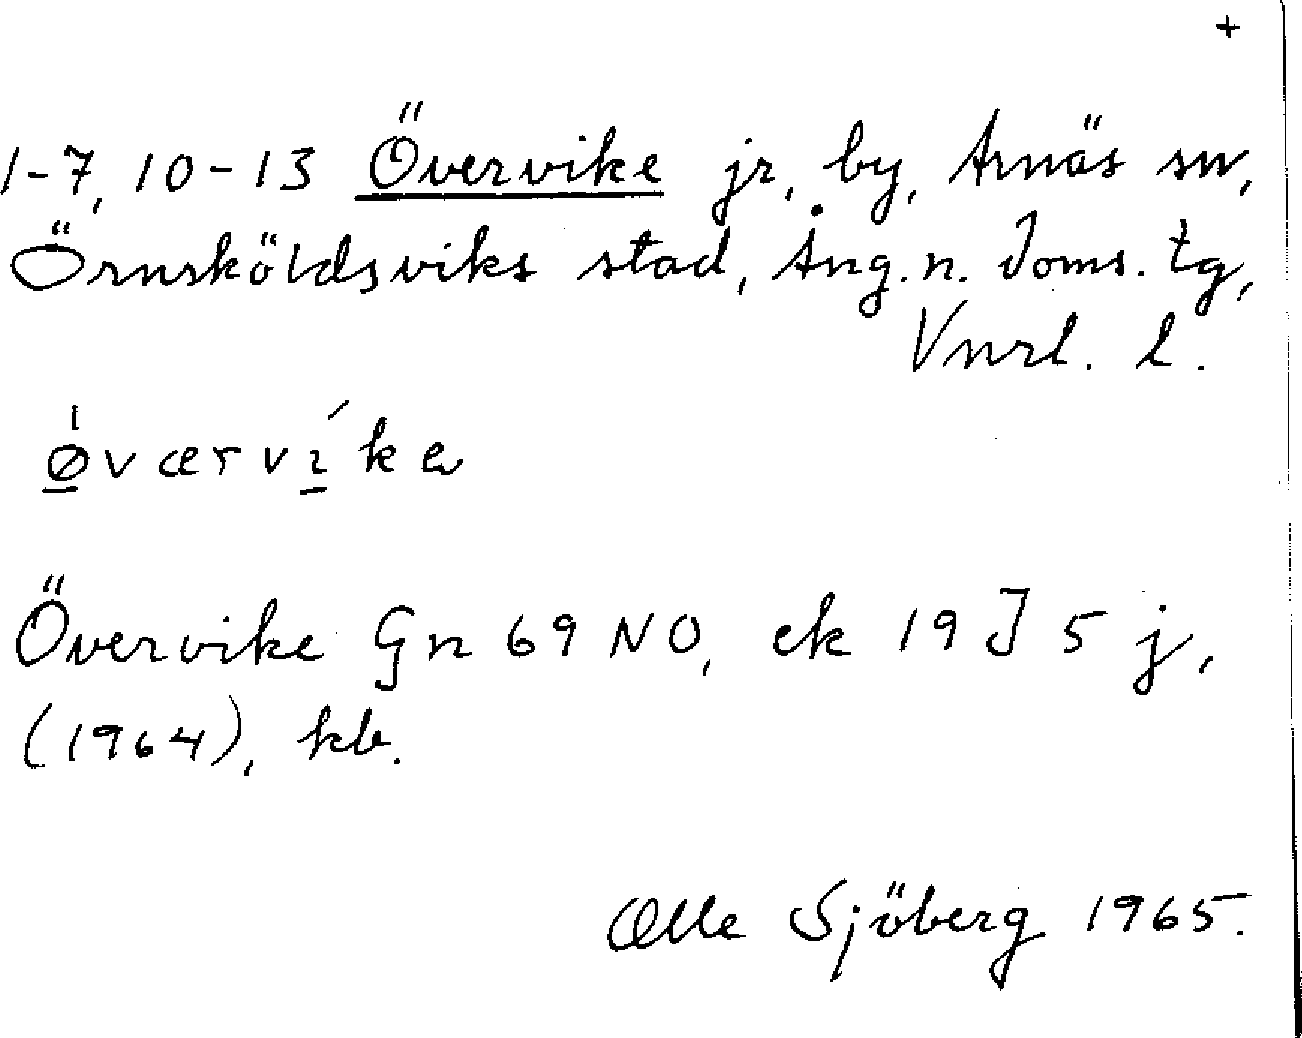 +
1-7, 10-13 Övervike jr, by, Arnäs sn,
Örnsköldsviks stad, Ång. n. Doms. tg,
Vnrl. l.
øværvíka
Övervike Gn 69 NO, ek 19 J 5 j,
(1964), kb.
Olle Sjöberg 1965.